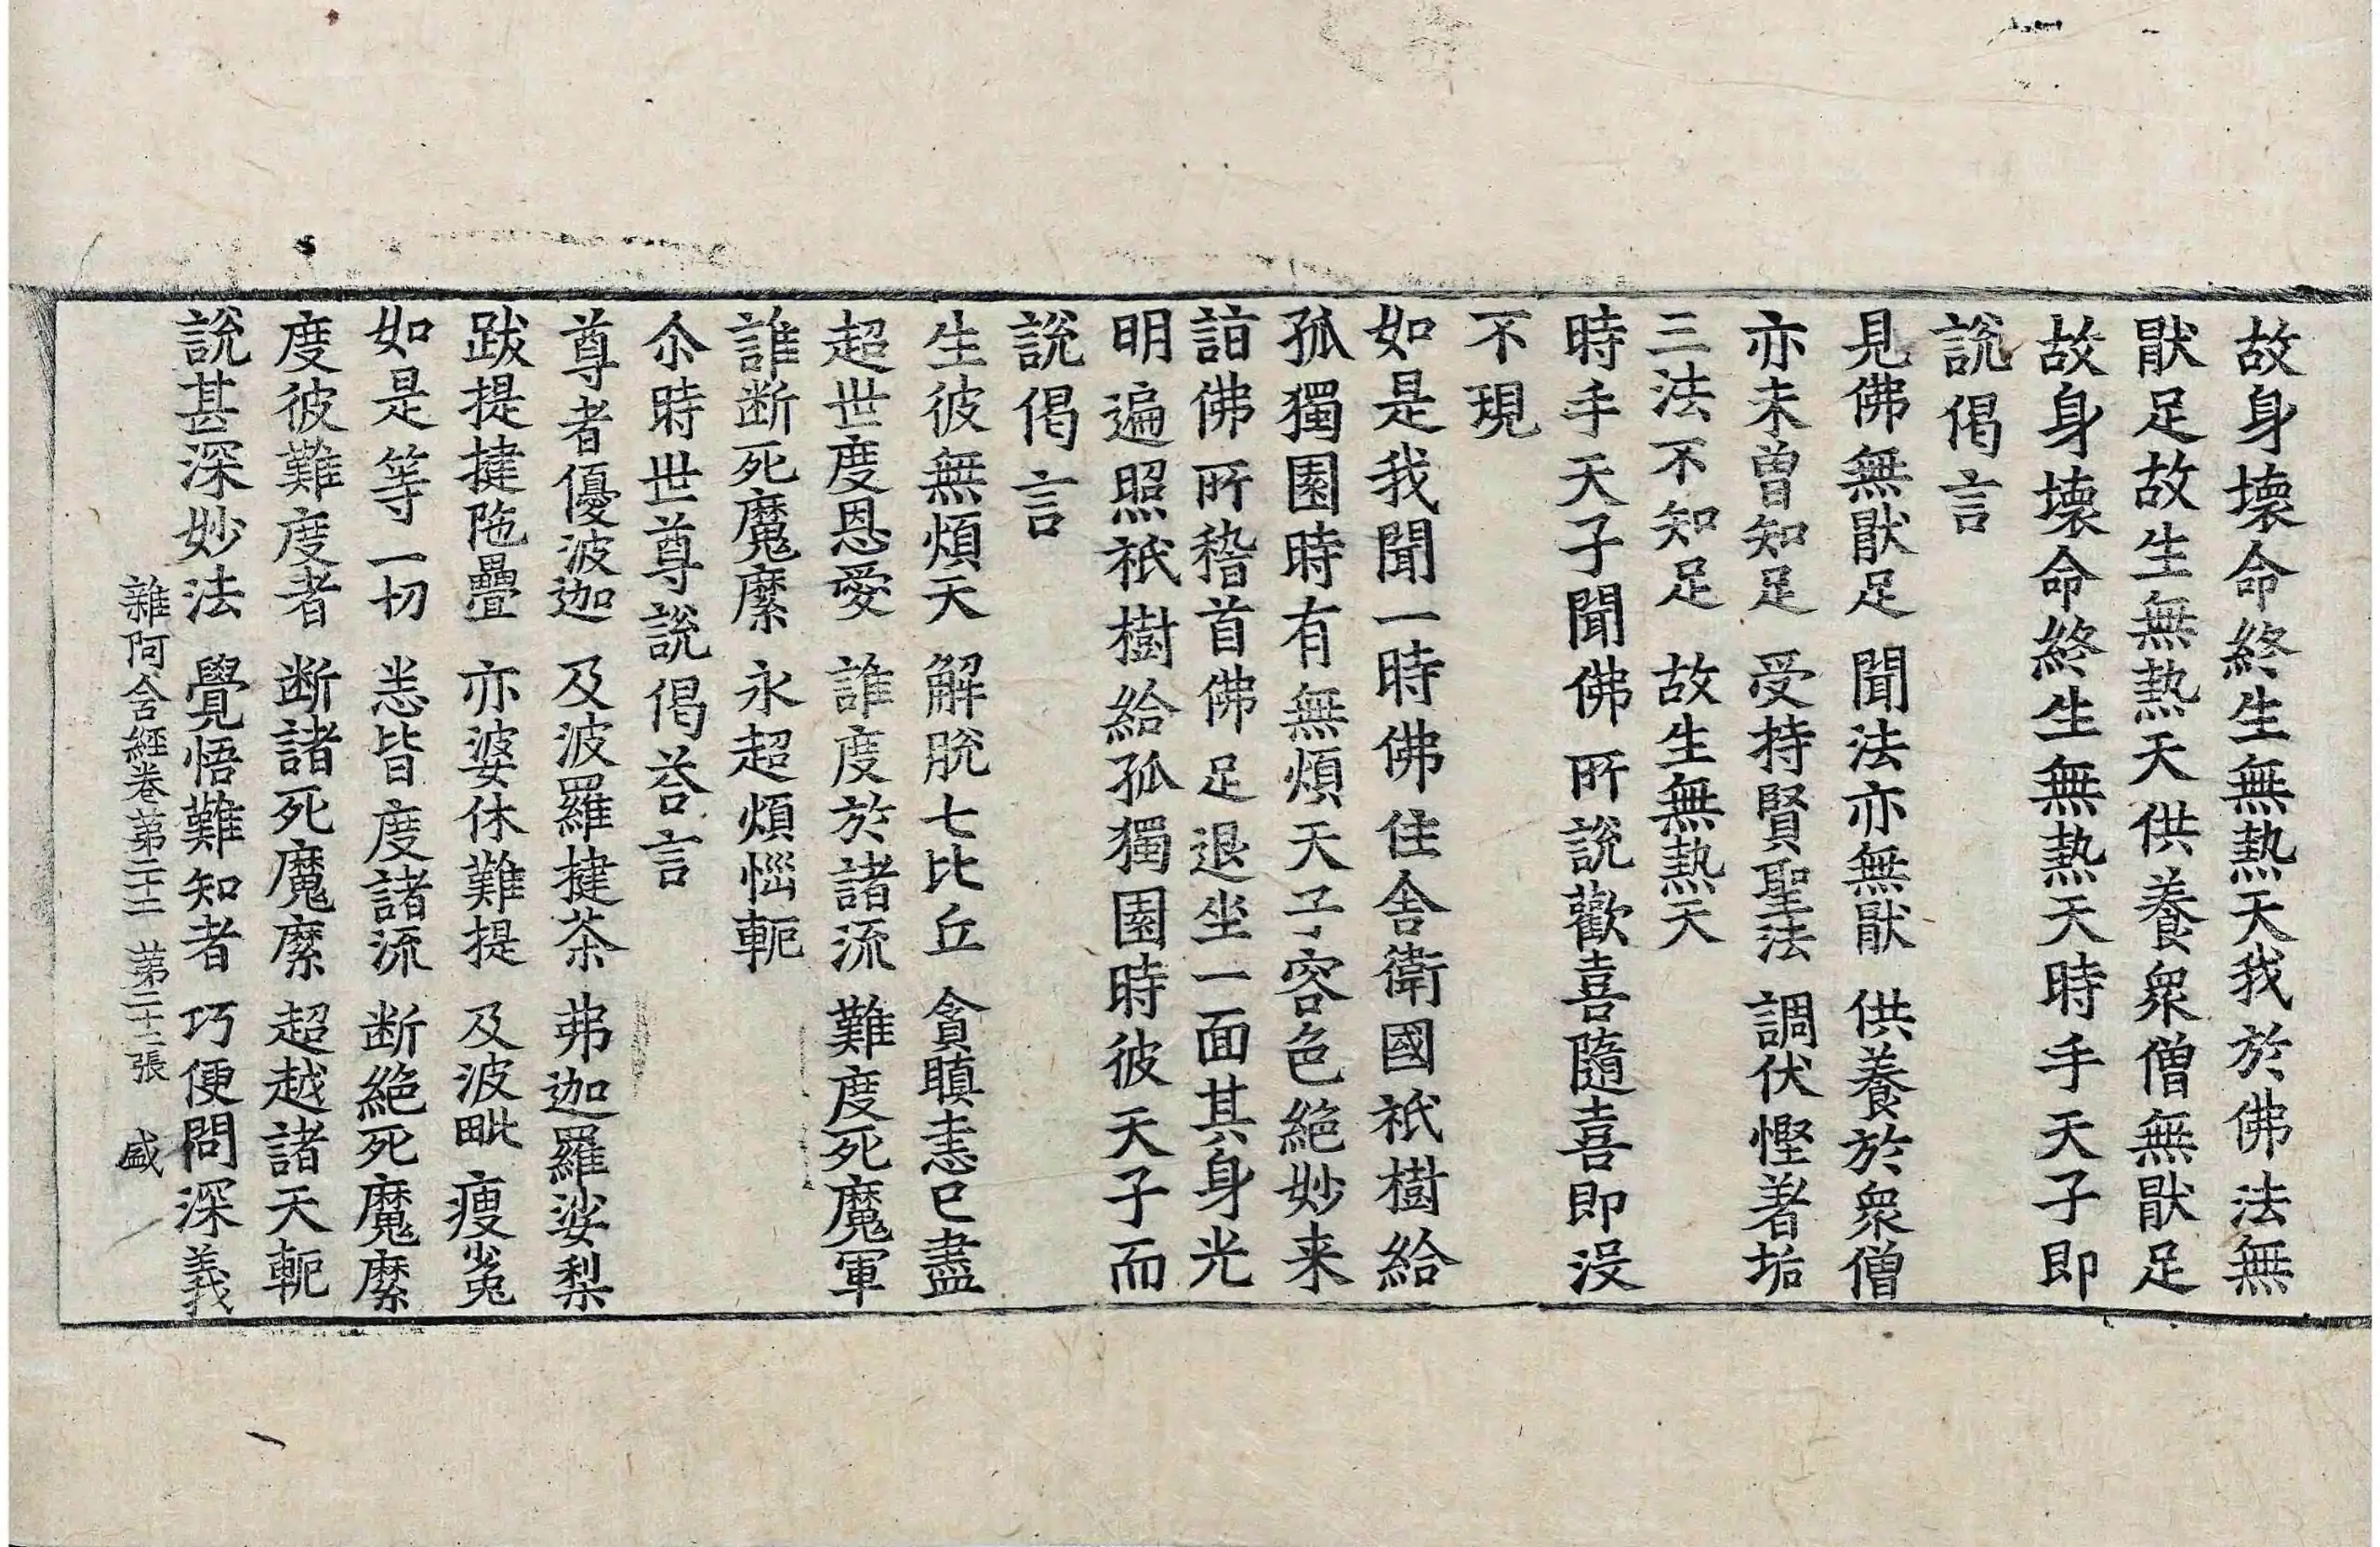 故身壞命終生無熱天我於佛法無
猒足故生無熱天供養衆僧無猒足
故身壞命終生無熱天時手天子即
說偈言
見佛無猒足　聞法亦無猒　供養於衆僧
亦未曾知足　受持賢聖法　調伏慳著垢
三法不知足　故生無熱天
時手天子聞佛所說歡喜隨喜即没
不現
如是我聞一時佛住舍衛國祇樹給
孤獨園時有無煩天子容色絶妙来
詣佛所稽首佛足退坐一面其身光
明遍照祇樹給孤獨園時彼天子而
說偈言
生彼無煩天　解脫七比丘　貪瞋恚已盡
超世度恩愛　誰度於諸流　難度死魔軍
誰断死魔縻　永超煩惱軛
尒時世尊說偈荅言
尊者優波迦　及波羅揵茶　弗迦羅娑梨
跋提揵陁疊　亦婆休難提　及波毗瘦㝹
如是等一切　悉皆度諸流　断絶死魔縻
度彼難度者　断諸死魔縻　超越諸天軛
說甚深妙法　覺悟難知者　巧便問深義
雜阿含經卷第二十二　第二十二張　盛